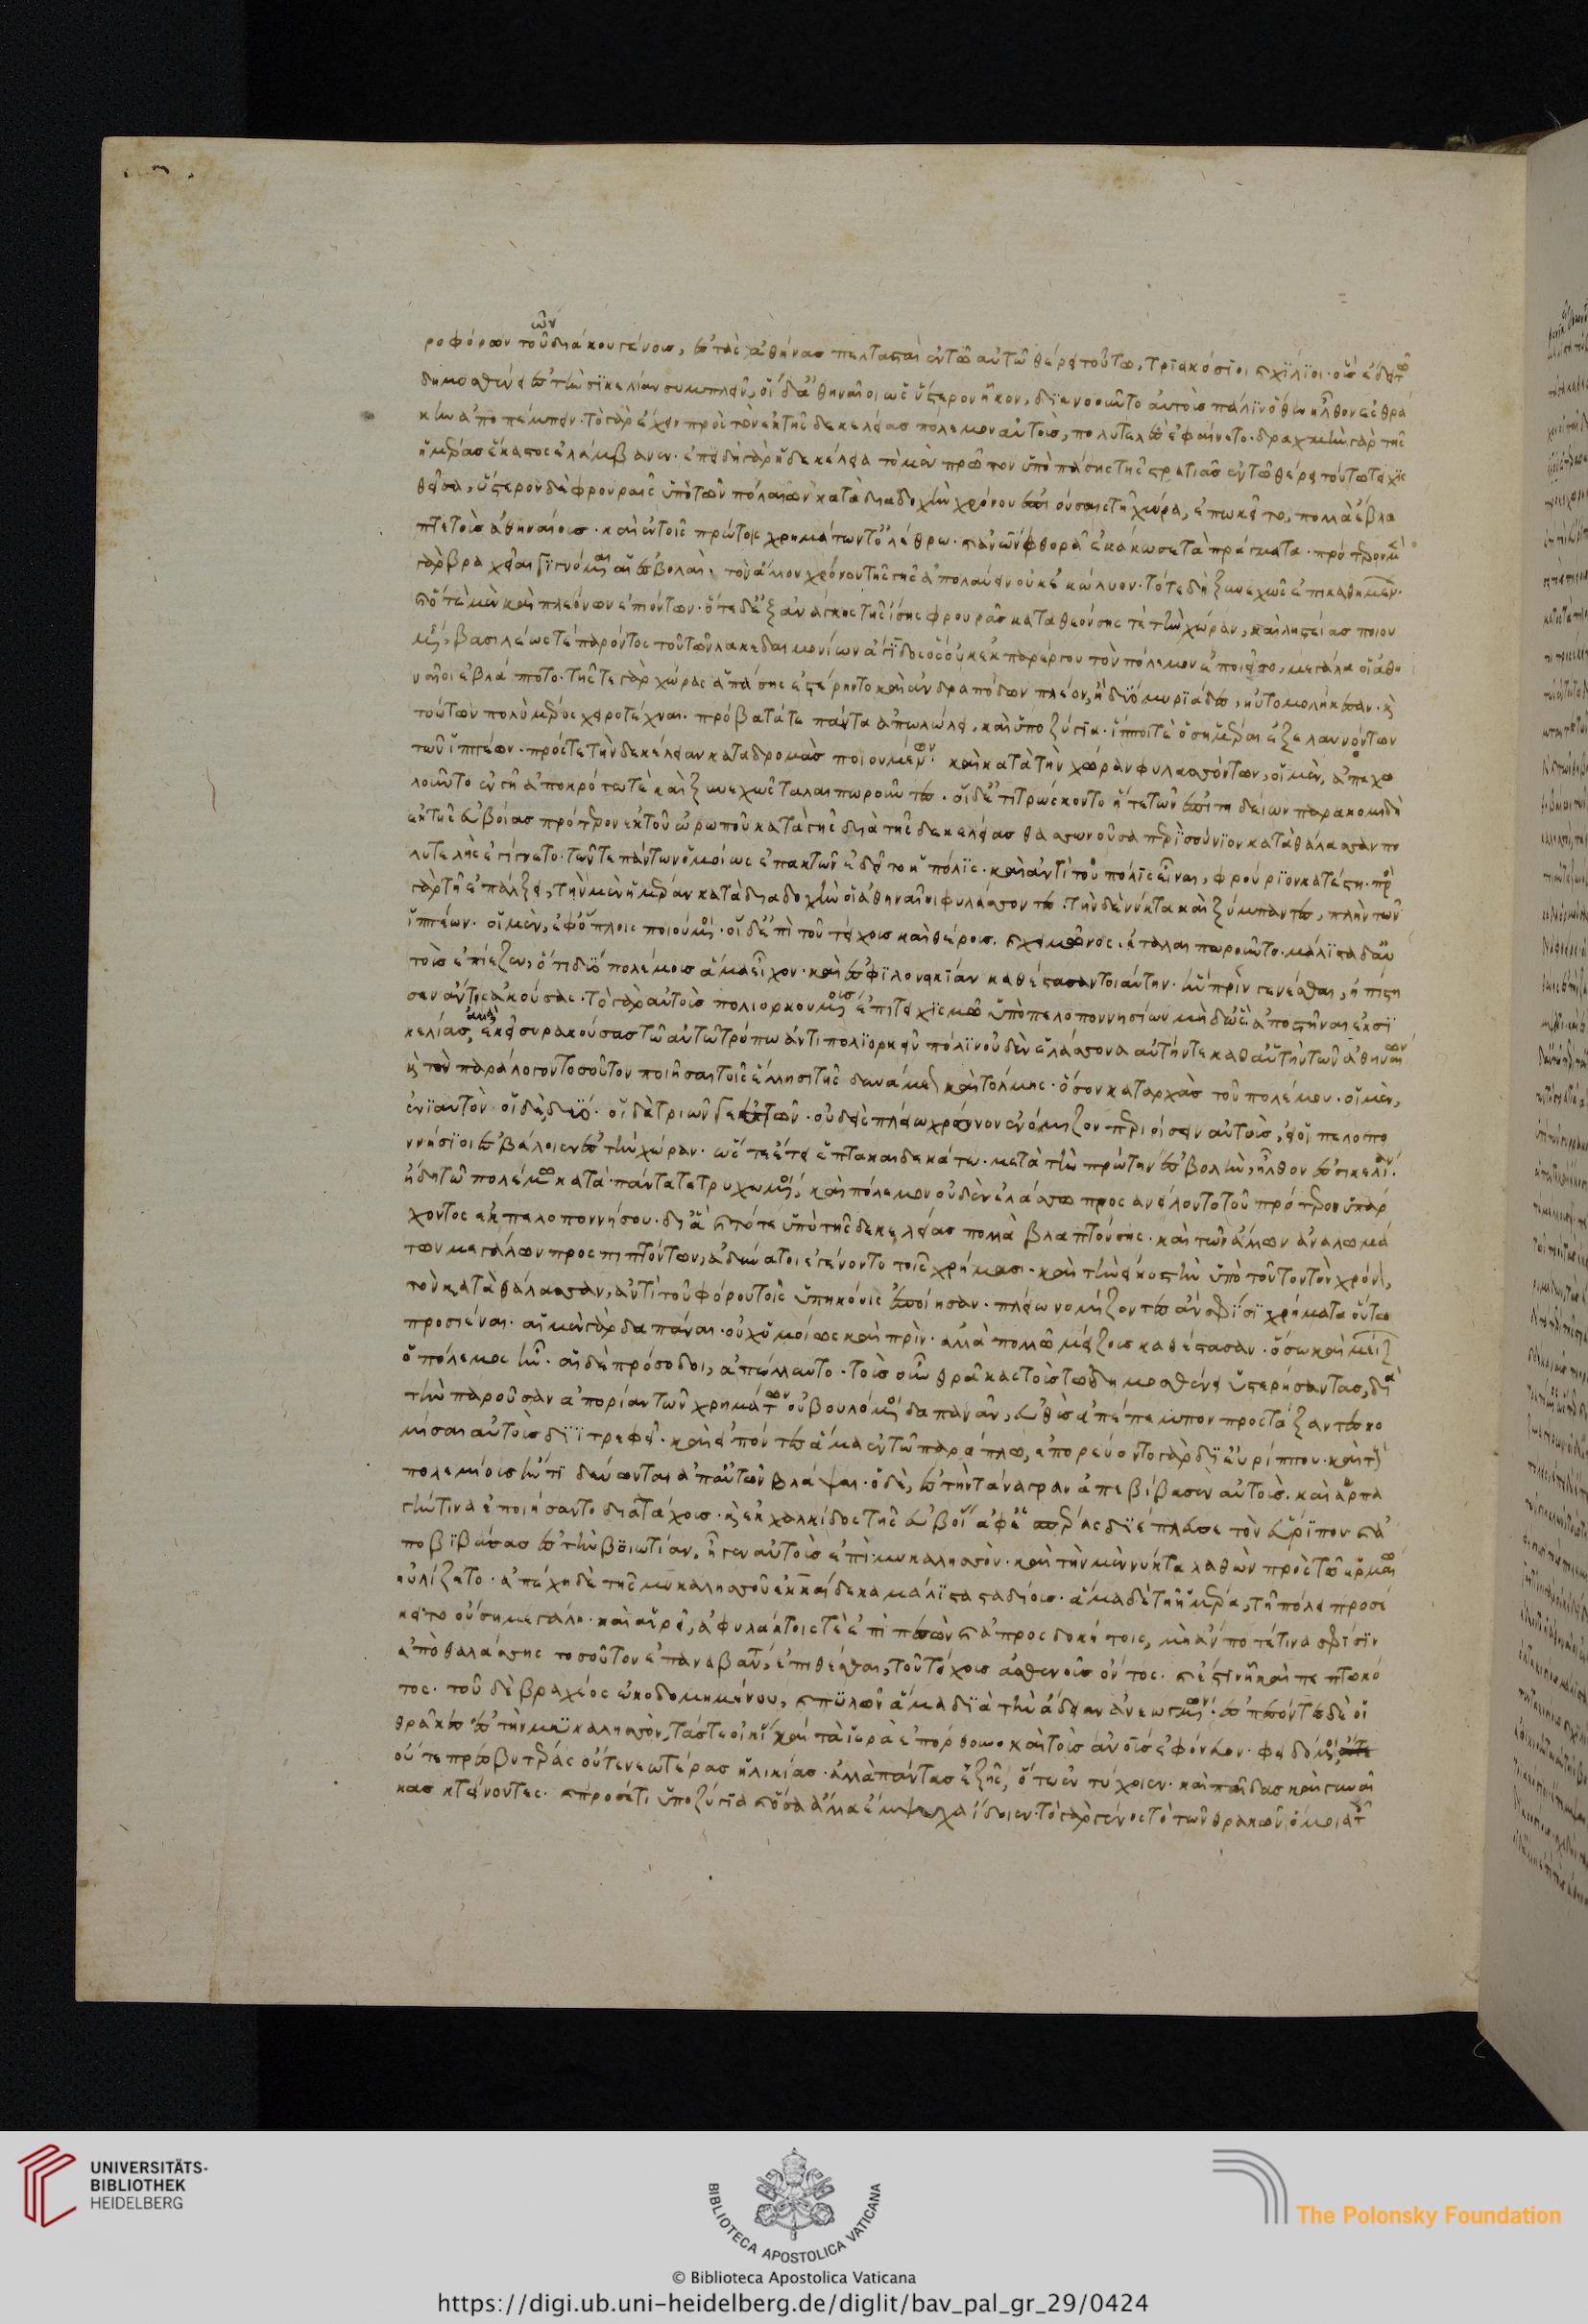 ροφόρων τοῦ διακοῦ γένους, ἐς τὰς ἀθήνας πελτασταὶ ἐν τῶ αὐτῶ θέρει τούτω, τριακόσιοι καὶ χίλιοι· οὓς ἔδει τῶ
δημοσθένει ἐς τὴν σικελίαν συμπλεῖν, οἱ δ' ἀθηναῖοι ὡς ὕστερον ἧκον, διενοοῦντο αὐτοὺς πάλιν ὅθεν ἦλθον ἐς θρά
κην ἀποπέμπειν· τὸ γὰρ ἔχειν πρὸς τὸν ἐκ τῆς δεκελείας πόλεμον αὐτοὺς, πολυτελὲς ἐφαίνετο· δραχμὴν γὰρ τῆς
ἡμέρας ἕκαστος ἐλάμβανεν· ἐπειδὴ γὰρ ἡ δεκέλεια τὸ μὲν πρῶτον ὑπὸ πάσης τῆς στρατιᾶς ἐν τῶ θέρει τούτω τειχισ
θεῖσα, ὕστερον δὲ φρουραῖς ὑπὸ τῶν πόλεων κατὰ διαδοχὴν χρόνου ἐπιούσαις τῆ χώρα, ἐπωκεῖτο, πολλὰ ἔβλα
πτε τοὺς ἀθηναίους· καὶ ἐν τοῖς πρώτοις χρημάτων τ' ὀλέθρω· καὶ ἀνῶν φθορᾶ ἐκάκωσε τὰ πράγματα· πρότερον μὲν
γὰρ βραχεῖαι γιγνόμεναι αἱ ἐσβολαὶ, τὸν ἄλλον χρόνον τῆς γῆς ἀπολαύειν οὐκ ἐκώλυον· τότε δὴ ξυνεχῶς ἐπικαθημέν·
καὶ ὁτὲ μὲν καὶ πλεόνων ἐπιόντων· ὁτὲ δ' ἐξ ἀνάγκης τῆς ἴσης φρουρᾶς καταθεούσης τὲ τὴν χώραν, καὶ ληστείας ποιου
μένης, βασιλέως τὲ παρόντος τοῦ τῶν λακεδαιμονίων ἄγιδος ὃς οὐκ ἐκ παρέργου τὸν πόλεμον ἐποιεῖτο, μεγάλα οἱ ἀθη
ναῖοι ἐβλάπτοντο· τῆς τε γὰρ χώρας ἁπάσης ἐστέρηντο καὶ ἀνδραπόδων πλέον, ἢ δύο μυριάδες, ηὐτομολήκεσαν· καὶ
τούτων πολὺ μέρος χειροτέχναι· πρόβατά τε πάντα ἀπωλώλει, καὶ ὑποζύγια· ἵπποι τὲ ὁσημέραι ἐξελαυνόντων
τῶν ἱππέων· πρός τε τὴν δεκέλειαν καταδρομὰς ποιουμένων· καὶ κατὰ τὴν χώραν φυλασσόντων, οἱ μὲν, ἀπεχω
λοῦντο ἐν γῆ ἀποκρότω τὲ καὶ ξυνεχῶς ταλαιπωροῦντες· οἱ δ' ἐτιτρώσκοντο ἥ τε τῶν ἐπιτηδείων παρακομιδὴ
ἐκ τῆς εὐβοίας πρότερον ἐκ τοῦ ὠρωποῦ κατὰ γῆς διὰ τῆς δεκελείας θάσσων οὖσα περὶ σούνιον κατὰ θάλασσαν πο
λυτελὴς ἐγίγνετο· τῶν τε πάντων ὁμοίως ἐπακτῶν ἐδεῖτο ἡ πόλις· καὶ ἀντὶ τοῦ πόλις εἶναι, φρούριον κατέστη· πρὸς
γὰρ τῆ ἐπάλξει, τὴν μὲν ἡμέραν κατὰ διαδοχὴν οἱ ἀθηναῖοι φυλάσσοντες· τὴν δὲ νύκτα καὶ ξύμπαντες, πλὴν τῶν
ἱππέων· οἱ μὲν, ἐφ' ὅπλοις ποιούμενοι· οἱ δ' ἐπὶ τοῦ τείχους καὶ θέρους καὶ χειμῶνος, ἐταλαιπωροῦντο· μάλιστα δ' αὐ
τοὺς ἐπίεζεν, ὅτι δύο πολέμους ἅμα εἶχον· καὶ ἐς φιλονεικίαν καθέστασαν τοιαύτην· ἣν πρὶν γενέσθαι, ἠπίστη
σεν ἄν τις ἀκούσας· τὸ γὰρ αὐτοὺς πολιορκουμένους ἐπιτειχισμῶ ὑπὸ πελοποννησίων μὴ δ' ὣς ἀποστῆναι ἐκ σι
κελίας, ἀλλὰ ἐκεῖ συρακούσας τῶ αὐτῶ τρόπω ἀντιπολιορκεῖν πόλιν οὐδὲν ἐλάσσονα αὐτήν τε καθ' αὑτὴν τῶν ἀθηναίων
καὶ τὸν παράλογον τοσοῦτον ποιῆσαι τοῖς ἕλλησι τῆς δυνάμεως καὶ τόλμης· ὅσον κατ' ἀρχὰς τοῦ πολέμου· οἱ μὲν,
ἐνιαυτὸν· οἱ δὲ, δύο· οἱ δὲ τριῶν γε ἐτῶν· οὐδεὶς πλείω χρόνον ἐνόμιζον περιοίσειν αὐτοὺς, εἰ οἱ πελοπο
ννήσιοι ἐσβάλοιεν ἐς τὴν χώραν· ὥστε ἔτει ἑπτακαιδεκάτω· μετὰ τὴν πρώτην ἐσβολὴν ἦλθον ἐς σικελίαν·
ἤδη τῶ πολέμω κατὰ πάντα τετρυχωμένοι, καὶ πόλεμον οὐδὲν ἐλάσσω προσανείλοντο τοῦ πρότερον ὑπάρ
χοντος ἐκ πελοποννήσου· δι' ἃ καὶ τότε ὑπό τε τῆς δεκελείας πολλὰ βλαπτούσης· καὶ τῶν ἄλλων ἀναλωμά
των μεγάλων προσπιπτόντων, ἀδύνατοι ἐγένοντο τοῖς χρήμασι· καὶ τὴν εἰκοστὴν ὑπὸ τοῦτον τὸν χρόνον,
τῶν κατὰ θάλασσαν, ἀντὶ τοῦ φόρου τοῖς ὑπηκόοις ἐποίησαν· πλείω νομίζοντες ἂν σφίσι χρήματα οὕτω
προσιέναι· αἱ μὲν γὰρ δαπάναι· οὐχ' ὁμοίως καὶ πρὶν· ἀλλὰ πολλῶ μείζους καθέστασαν· ὅσω καὶ μείζ
ὁ πόλεμος ἦν· αἱ δὲ πρόσοδοι, ἀπώλλυντο· τοὺς οὖν θρᾶκας τοὺς τῶ δημοσθένει ὑστερήσαντας, διὰ
τὴν παροῦσαν ἀπορίαν τῶν χρημάτων οὐ βουλόμενοι δαπανᾶν, εὐθὺς ἀπέπεμπον προστάξαντες κο
μίσαι αὐτοὺς διϊτρεφεῖ· καὶ εἰπόντες ἅμα ἐν τῶ παράπλω, ἐπορεύοντο γὰρ δι' εὐρίππου· καὶ τοὺς
πολεμίους ἤν τι δύνωνται ἀπ' αὐτῶν βλάψαι· ὁ δὲ, ἐς τὴν τάναγραν ἀπεβίβασεν αὐτοὺς, καὶ ἁρπα
γήν τινα ἐποιήσαντο διὰ τάχους· καὶ ἐκ χαλκίδος τῆς εὐβοίας ἀφ' ἑσπέρας διέπλευσε τὸν εὔριπον καὶ ἀ
ποβιβάσας ἐς τὴν βοιωτίαν, ἦγεν αὐτοὺς ἐπὶ μυκαλησσὸν· καὶ τὴν μὲν νύκτα λαθὼν πρὸς τῶ ἑρμαίω
ηὐλίζετο· ἀπέχει δὲ τῆς μυκαλησσοῦ ἑκκαίδεκα μάλιστα σταδίους· ἅμα δὲ τῆ ἡμέρα, τῆ πόλει προσέ
κειτο οὔση μεγάλη· καὶ αἱρεῖ, ἀφυλάκτοις τὲ ἐπιπεσὼν καὶ ἀπροσδοκήτοις, μὴ ἄν ποτέ τινα σφίσιν
ἀπὸ θαλάσσης τοσοῦτον ἐπαναβάντα, ἐπιθέσθαι, τοῦ τείχους ἀσθενοῦς ὄντος· καὶ ἔστιν ἧ καὶ πεπτωκό
τος· τοῦ δὲ βραχέος ὠκοδομημένου, καὶ πυλῶν ἅμα διὰ τὴν ἄδειαν ἀνεωγμένων· ἐσπεσόντες δὲ οἱ
θρᾶκες ἐς τὴν μυκαλησσὸν, τάς τε οἰκίας καὶ τὰ ἱερὰ ἐπόρθουν καὶ τοὺς ἀνοὺς ἐφόνευον· φειδόμενοι
οὔτε πρεσβυτέρας οὔτε νεωτέρας ἡλικίας· ἀλλὰ πάντας ἑξῆς, ὅτω ἐντύχοιεν· καὶ παῖδας καὶ γυναῖ
κας κτείνοντες· καὶ προσέτι ὑποζύγια καὶ ὅσα ἄλλα ἔμψυχα ἴδοιεν· τὸ γὰρ γένος τὸ τῶν θρακῶν ὅμοια τ
UNIVERSITÄTS-
BIBLIOTHEK
HEIDELBERG
BIBLIOTECA APOSTOLICA VATICANA
The Polonsky Foundation
© Biblioteca Apostolica Vaticana
https://digi.ub.uni-heidelberg.de/diglit/bav_pal_gr_29/0424